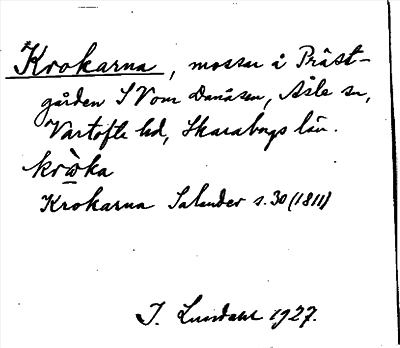 Krokarna, mossar å Präst-
gården S V om Danåsen, Åsle sn,
Vartofte hd, Skaraborgs län.
krⱥka
Krokarna Salander s. 30 (1811)
I. Lundahl 1927.